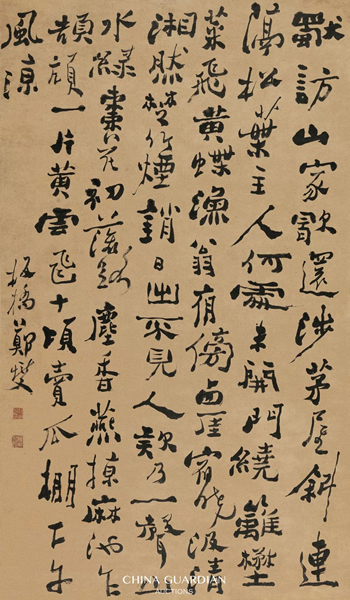 獨訪山家歇還涉茅屋斜連
隔松葉主人何處未開門繞籬野
菜飛黃蝶漁翁夜傍西崖宿曉汲清
湘然楚竹煙銷日出不見人欸乃一聲山
水綠棗花初落路塵香燕掠麻池乍
頡頏一片黃雲飛十頃賣瓜棚下午
風涼
板橋鄭燮
CHINA GUARDIAN
AUCTIONS